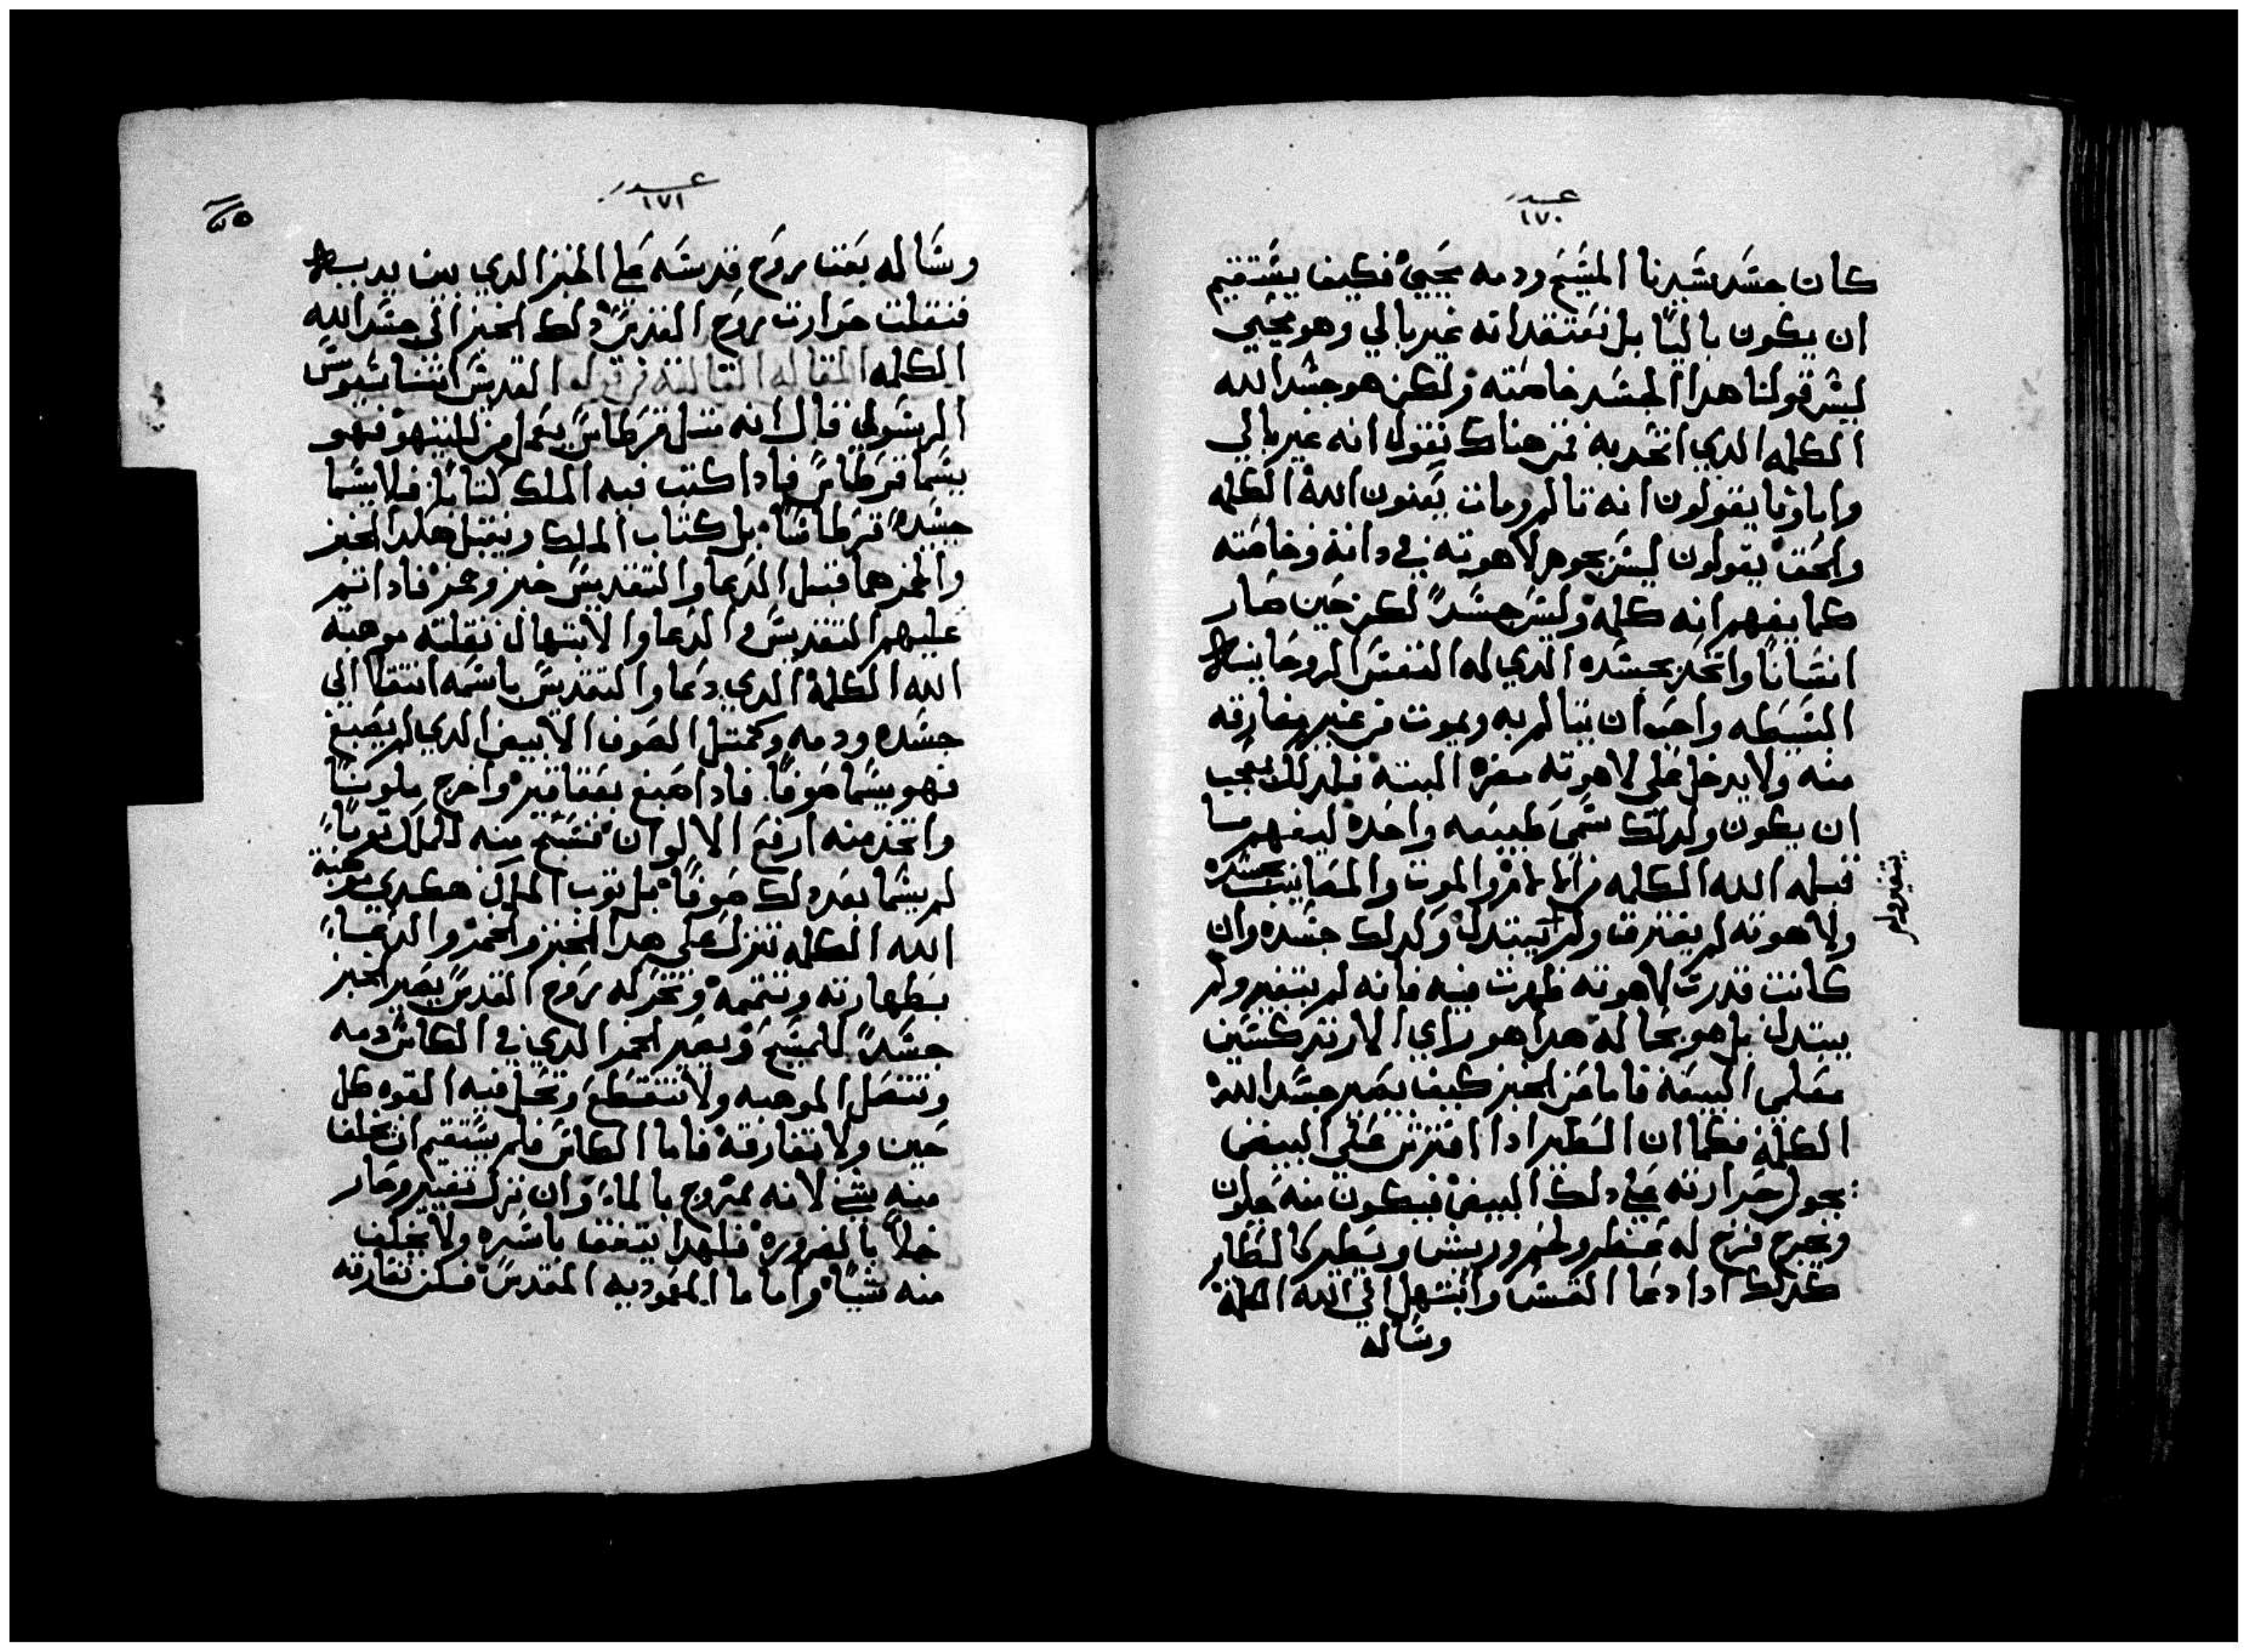 عدد
١٧٠
كان جسد سيدنا المسيح ودمه يحيي فكيف يستقيم
ان يكون باليًا بل نعتقد انه غير بالي وهو محيي
ليس قولنا هدا الجسد خاصته ولكن هو جسد الله
الكلمه الدي اتحد به فمن هناك نقول انه غير بالي
واباونا يقولون انه تالم ومات يعنون الله الكلمه
والحق يقولون ليس بجوهر لاهوته في داته وخاصته
كما يفهم انه كلمه وليس جسدًا لكن حين صار
انسانًا واتحد بجسده الدي له النفس الروحانيه
البسيطه واحب ان يتالم به ويموت من غير مفارقه
منه ولا يدخل على لاهوته مضره البته فلدلك يجب
ان يكون ولدلك سمي طبيعه واحده ليفهم ما
قبله الله الكلمه من الالام والموت والمصايب بجسده
ولاهوته لم يفترق ولم يتبدل وكدلك جسده وان
يتغير ولم
كانت قدرت لاهوته ظهرت فيه فانه لم يتغير ولم
يبتدل بل هو بحاله هدا هو راي الارتدكسيين
معلمي البيعه فاما عن الخبز كيف يصير جسد الله
الكلمه فكما ان الطير ادا افترش على البيض
يحول حرارته على دلك البيض فيكون منه حلون
ويخرج فرخ له عضم ولحم وريش ويطير كالطاير
كدلك ادا دعا القس وابتهل الي الله الكلمة
وساله
عدد
١٧١
٧٥
وساله يعت بروح قدسه على الخبز الدي بين يديه
فنقلت حرارت روح القدس دلك الخبز الي جسد الله
الكلمه المقاله التالته من قوله القديس اتناسيوس
الرسولي قال انه متل قرطاس يعمل من فهو
يسما قرطاس فادا كتب فيه الملك كتابًا فلا يسما
حينيد قرطاسًا بل كتاب الملك ويقبل هكدا الخبز
والخمر هما قبل الدعا والتقديس خبز وخمر فادا تم
عليهم التقديس والدعا والابتهال نقلته موهبه
الله الكلمه الدي دعا والتقديس باسمه انتقلا الي
جسده ودمه وكمتل الصوف الابيض الدي لم يصبغ
فهو يسما صوفًا فادا صبغ بعقاقير واخرج ملونًا
واتخد منه ارفع الالوان فنسج منه للملك توبًا
لم يسما بعد دلك صوفًا بل توب الملك هكدي موهبة
الله الكلمه تنزل على هدا الخبز والخمر والدعا
بطهارته وتتممه وتحركه بروح القدس يصير الخبز
جسدًا للمسيح ويصير الخمر الدي في الكاس دمه
وتتصل الموهبه ولا تنقطع وتحل فيه القوه كل
حين ولا تفارقه فاما الكاس فلم يستقيم ان يخلف
منه شي لانه ممزوج بالماء وان ترك تغير وصار
خلاً بالضروره فلهدا يتفق باسره ولا يخلف
منه شيًا واما ما المعموديه المقدس فتفارقه